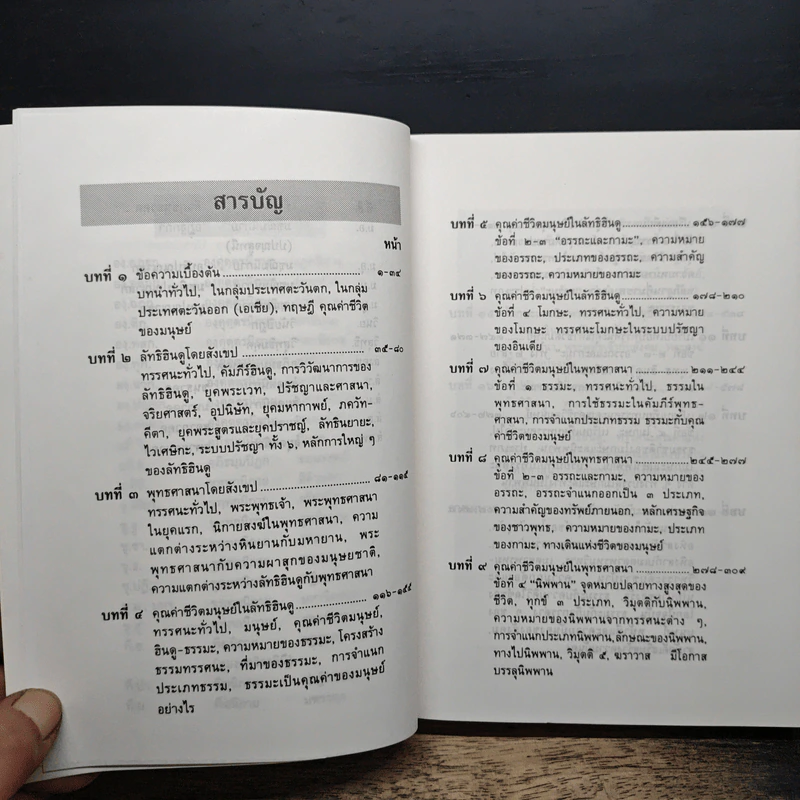 สารบัญ
หน้า
บทที่ ๑ ข้อความเบื้องต้น ........................................ ๑-๓๔
บทนำทั่วไป, ในกลุ่มประเทศตะวันตก, ในกลุ่ม
ประเทศตะวันออก (เอเซีย), ทฤษฎี คุณค่าชีวิต
ของมนุษย์
บทที่ ๒ ลัทธิฮินดูโดยสังเขป ........................................ ๓๕-๘๐
ทรรศนะทั่วไป, คัมภีร์ฮินดู, การวิวัฒนาการของ
ลัทธิฮินดู, ยุคพระเวท, ปรัชญาและศาสนา,
จริยศาสตร์, อุปนิษัท, ยุคมหากาพย์, ภควัท-
คีตา, ยุคพระสูตรและยุคปราชญ์, ลัทธินยายะ,
ไวเศษิกะ, ระบบปรัชญา ทั้ง ๖, หลักการใหญ่ ๆ
ของลัทธิฮินดู
บทที่ ๓ พุทธศาสนาโดยสังเขป ........................................ ๘๑-๑๑๕
ทรรศนะทั่วไป, พระพุทธเจ้า, พระพุทธศาสนา
ในยุคแรก, นิกายสงฆ์ในพุทธศาสนา, ความ
แตกต่างระหว่างหินยานกับมหายาน, พระ
พุทธศาสนากับความผาสุกของมนุษยชาติ,
ความแตกต่างระหว่างลัทธิฮินดูกับพุทธศาสนา
บทที่ ๔ คุณค่าชีวิตมนุษย์ในลัทธิฮินดู ........................................ ๑๑๖-๑๕๕
ทรรศนะทั่วไป, มนุษย์, คุณค่าชีวิตมนุษย์,
ฮินดู-ธรรมะ, ความหมายของธรรมะ, โครงสร้าง
ธรรมทรรศนะ, ที่มาของธรรมะ, การจำแนก
ประเภทธรรม, ธรรมะเป็นคุณค่าของมนุษย์
อย่างไร
บทที่ ๕ คุณค่าชีวิตมนุษย์ในลัทธิฮินดู ........................................ ๑๕๖-๑๗๗
ข้อที่ ๒-๓ "อรรถะและกามะ", ความหมาย
ของอรรถะ, ประเภทของอรรถะ, ความสำคัญ
ของอรรถะ, ความหมายของกามะ
บทที่ ๖ คุณค่าชีวิตมนุษย์ในลัทธิฮินดู ........................................ ๑๗๘-๒๑๐
ข้อที่ ๔ โมกษะ, ทรรศนะทั่วไป, ความหมาย
ของโมกษะ ทรรศนะโมกษะในระบบปรัชญา
ของอินเดีย
บทที่ ๗ คุณค่าชีวิตมนุษย์ในพุทธศาสนา ........................................ ๒๑๑-๒๔๔
ข้อที่ ๑ ธรรมะ, ทรรศนะทั่วไป, ธรรมใน
พุทธศาสนา, การใช้ธรรมะในคัมภีร์พุทธ-
ศาสนา, การจำแนกประเภทธรรม ธรรมะกับคุณ
ค่าชีวิตของมนุษย์
บทที่ ๘ คุณค่าชีวิตมนุษย์ในพุทธศาสนา ........................................ ๒๔๕-๒๗๗
ข้อที่ ๒-๓ อรรถะและกามะ, ความหมายของ
อรรถะ, อรรถะจำแนกออกเป็น ๓ ประเภท,
ความสำคัญของทรัพย์ภายนอก, หลักเศรษฐกิจ
ของชาวพุทธ, ความหมายของกามะ, ประเภท
ของกามะ, ทางเดินแห่งชีวิตของมนุษย์
บทที่ ๙ คุณค่าชีวิตมนุษย์ในพุทธศาสนา ........................................ ๒๗๘-๓๐๙
ข้อที่ ๔ "นิพพาน" จุดหมายปลายทางสูงสุดของ
ชีวิต, ทุกข์ ๓ ประเภท, วิมุตติกับนิพพาน,
ความหมายของนิพพานจากทรรศนะต่าง ๆ,
การจำแนกประเภทนิพพาน,ลักษณะของนิพพาน,
ทางไปนิพพาน, วิมุตติ ๕, ฆราวาส มีโอกาส
บรรลุนิพพาน